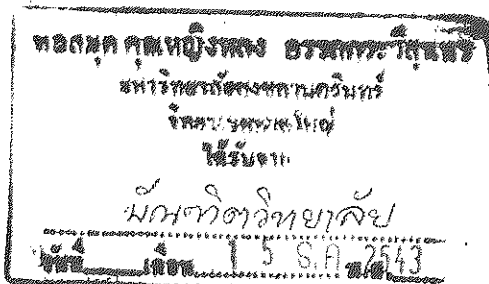 หอสมุด คุณหญิงหลง อรรถกระวีสุนทร
มหาวิทยาลัยสงขลานครินทร์
วิทยาเขตหาดใหญ่
ได้รับจาก
บัณฑิตวิทยาลัย
วันที่ เดือน 15 ธ.ค. 2543